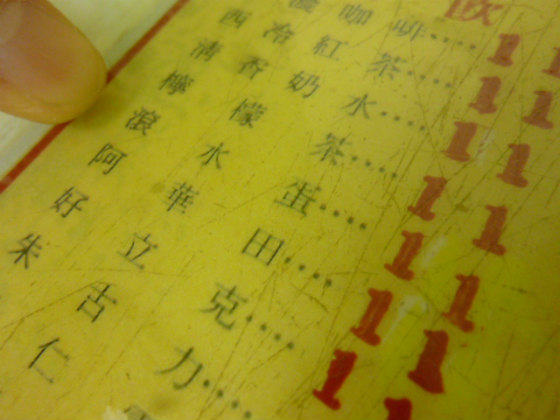 飲
咖啡....11
西冷紅茶....11
清香奶水....11
檸檬茶....11
滾水蛋....11
阿華田....11
好立克....11
朱古力....11
仁